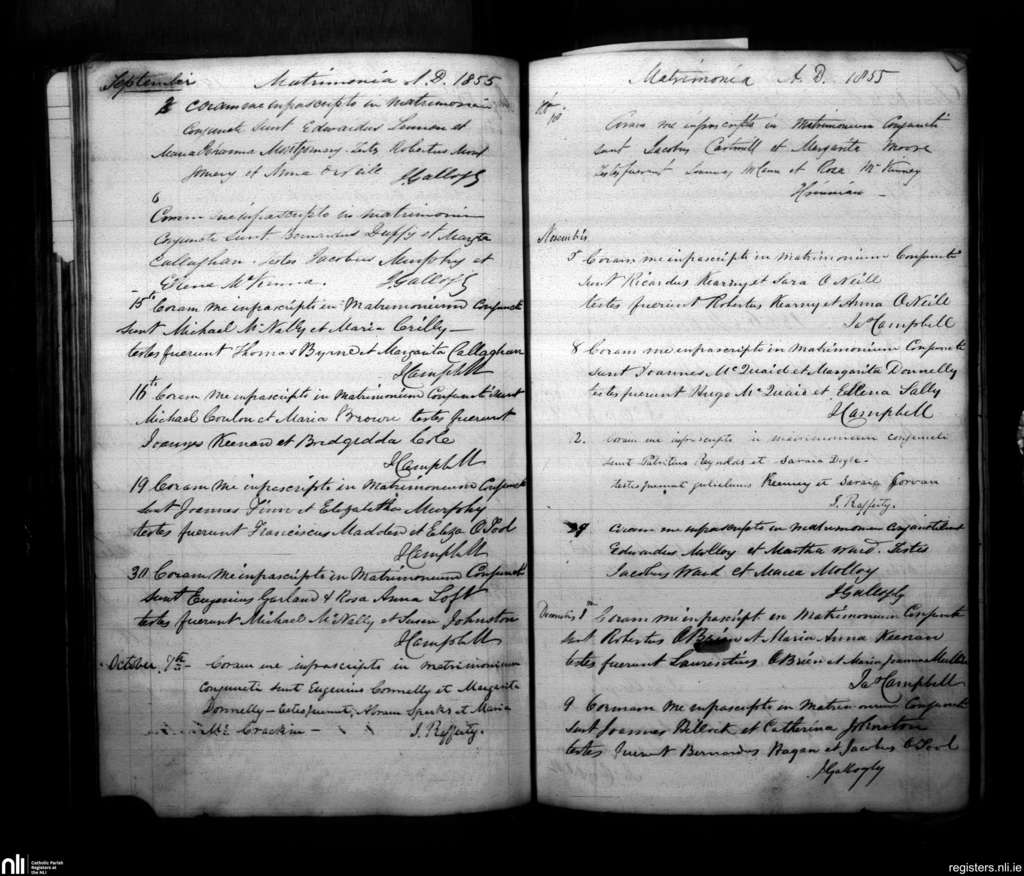 September Matrimonia A.D. 1855
2 Coram me infrascripto in matrimonium
Conjuncti sunt Edwardus Lennon et
Maria Johanna Montgomery. testes Robertus Mont
gomery et Anna O'Neille J. Gallogly
6
Coram me infrascripto in matrimonium
Conjuncti sunt Bernardus Duffy et Margta
Callaghan. testes Jacobus Murphy et
Elena McKenna. J. Gallogly
15th Coram me infrascripti in Matrimonium Conjuncti
sunt Michael McNally et Maria Crilly—
testes fuerunt Thomas Byrne et Margarita Callaghan
J Campbell
16th Coram me infrascripti in Matrimonium Conjuncti sunt
Michael Conlon et Maria Browne testes fuerunt
Joannes Keenan et Bridgedda Cole
J Campbell
19 Coram me infrascripti in Matrimonium Conjuncti
sunt Joannes Finn et Elizabetha Murphy
testes fuerunt Franciscus Madden et Eliza O Tool
J Campbell
30 Coram me infrascripti in Matrimonium Conjuncti
sunt Eugenius Garland & Rosa Anna Loft
testes fuerunt Michael McNally et Susan Johnston
J Campbell
October 7th – Coram me infrascripto in matrimonium
Conjuncti sunt Eugenius Connelly et Margarita
Donnelly – testes fuerunt, Abram Sparks et Maria
Mc Crackin – J. Rafferty.
Matrimonia A.D. 1855
18
Coram me infrascripto in Matrimonium Conjuncti
sunt Jacobus Cantwell et Margarita Moore
testes fuerunt Joannes McCann et Rosa McKinney

Novembris
5 Coram me infrascripti in Matrimonium Conjuncti
sunt Ricardus Kearny et Sara O Neill
testes fuerunt Robertus Kearny et Anna O Neill
Jas Campbell
8 Coram me infrascripto in Matrimonium Conjuncti
sunt Joannes McQuaid et Margarita Donnelly
testes fuerunt Hugo McQuaid et Ellena Lally
J Campbell
2. Coram me infrascripto in matrimonium conjuncti
sunt Patritius Reynolds et Saraia Doyle.
testes fuerunt gulielmus Keenney et Saraia Corvan
J. Rafferty.
29 Coram me infrascripto in matrimonium Conjuncti sunt
Edwardus Molloy et Martha Ward. Testes
Jacobus Ward et Maria Molloy
J Gallogly
Decembris 1st Coram me infrascripti in Matrimonium Conjuncti
sunt Robertus O'Brien et Maria Anna Keenan
testes fuerunt Laurentius O Brien et Maria Joanna
Jas Campbell
9 Coram me infrascripto in Matrimonium Conjuncti
sunt Joannes Pillock et Catherina Johnston
testes fuerunt Bernardus Hagan et Jacobus O Tool
J Gallogly
nli Catholic Parish
Registers at
the NLI
registers.nli.ie